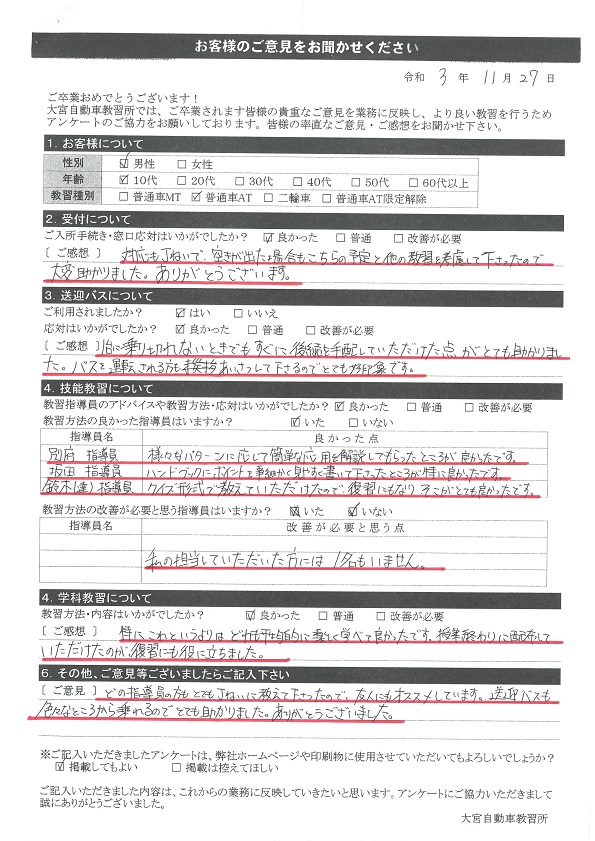 お客様のご意見をお聞かせください
令和 3 年 11 月 27 日
ご卒業おめでとうございます！
大宮自動車教習所では、ご卒業されます皆様の貴重なご意見を業務に反映し、より良い教習を行うため
アンケートのご協力をお願いしております。皆様の率直なご意見・ご感想をお聞かせ下さい。
1. お客様について
性別 ☑ 男性 □ 女性
年齢 ☑ 10代 □ 20代 □ 30代 □ 40代 □ 50代 □ 60代以上
教習種別 □ 普通車MT ☑ 普通車AT □ 二輪車 □ 普通車AT限定解除
2. 受付について
ご入所手続き・窓口応対はいかがでしたか？ ☑ 良かった □ 普通 □ 改善が必要
[ ご感想 ] 対応も丁ねいで、空きが出た場合もこちらの予定と他の教習を考慮して下さったので
大変助かりました。ありがとうございます。
3. 送迎バスについて
ご利用されましたか？ ☑ はい □ いいえ
応対はいかがでしたか？ ☑ 良かった □ 普通 □ 改善が必要
[ ご感想 ] に乗り切れないときでもすぐに後続を手配していただけた点がとても助かりまし
た。バスを運転される方も挨拶あいさつして下さるのでとても好印象です。
4. 技能教習について
教習指導員のアドバイスや教習方法・応対はいかがでしたか？ ☑ 良かった □ 普通 □ 改善が必要
教習方法の良かった指導員はいますか？ ☑ いた □ いない
指導員名 良かった点
別府 指導員 様々なパターンに応じて簡単な応用を解説してもらったところが良かったです。
坂田 指導員 ハンドブックにポイントを事細かく見やすく書いて下さったところが特に良かったです。
鈴木(達) 指導員 クイズ形式で教えていただけたので、復習にもなりそこがとても良かったです。
教習方法の改善が必要と思う指導員はいますか？ いた ☑ いない
指導員名 改善が必要と思う点
私の担当していただいた方には1名もいません。
4. 学科教習について
教習方法・内容はいかがでしたか？ ☑ 良かった □ 普通 □ 改善が必要
[ ご感想 ] 特にこれというよりはどれも平均的に楽しく学べて良かったです。授業終わりに配布して
いただけたのが、復習にも役に立ちました。
6. その他、ご意見等ございましたらご記入下さい
[ ご意見 ] どの指導員の方もとてもていねいに教えて下さったので、友人にもオススメしています。送迎バスも
色々なところから乗れるのでとても助かりました。ありがとうございました。
※ご記入いただきましたアンケートは、弊社ホームページや印刷物に使用させていただいてもよろしいでしょうか？
☑ 掲載してもよい □ 掲載は控えてほしい
ご記入いただきました内容は、これからの業務に反映していきたいと思います。アンケートにご協力いただきまして
誠にありがとうございました。
大宮自動車教習所